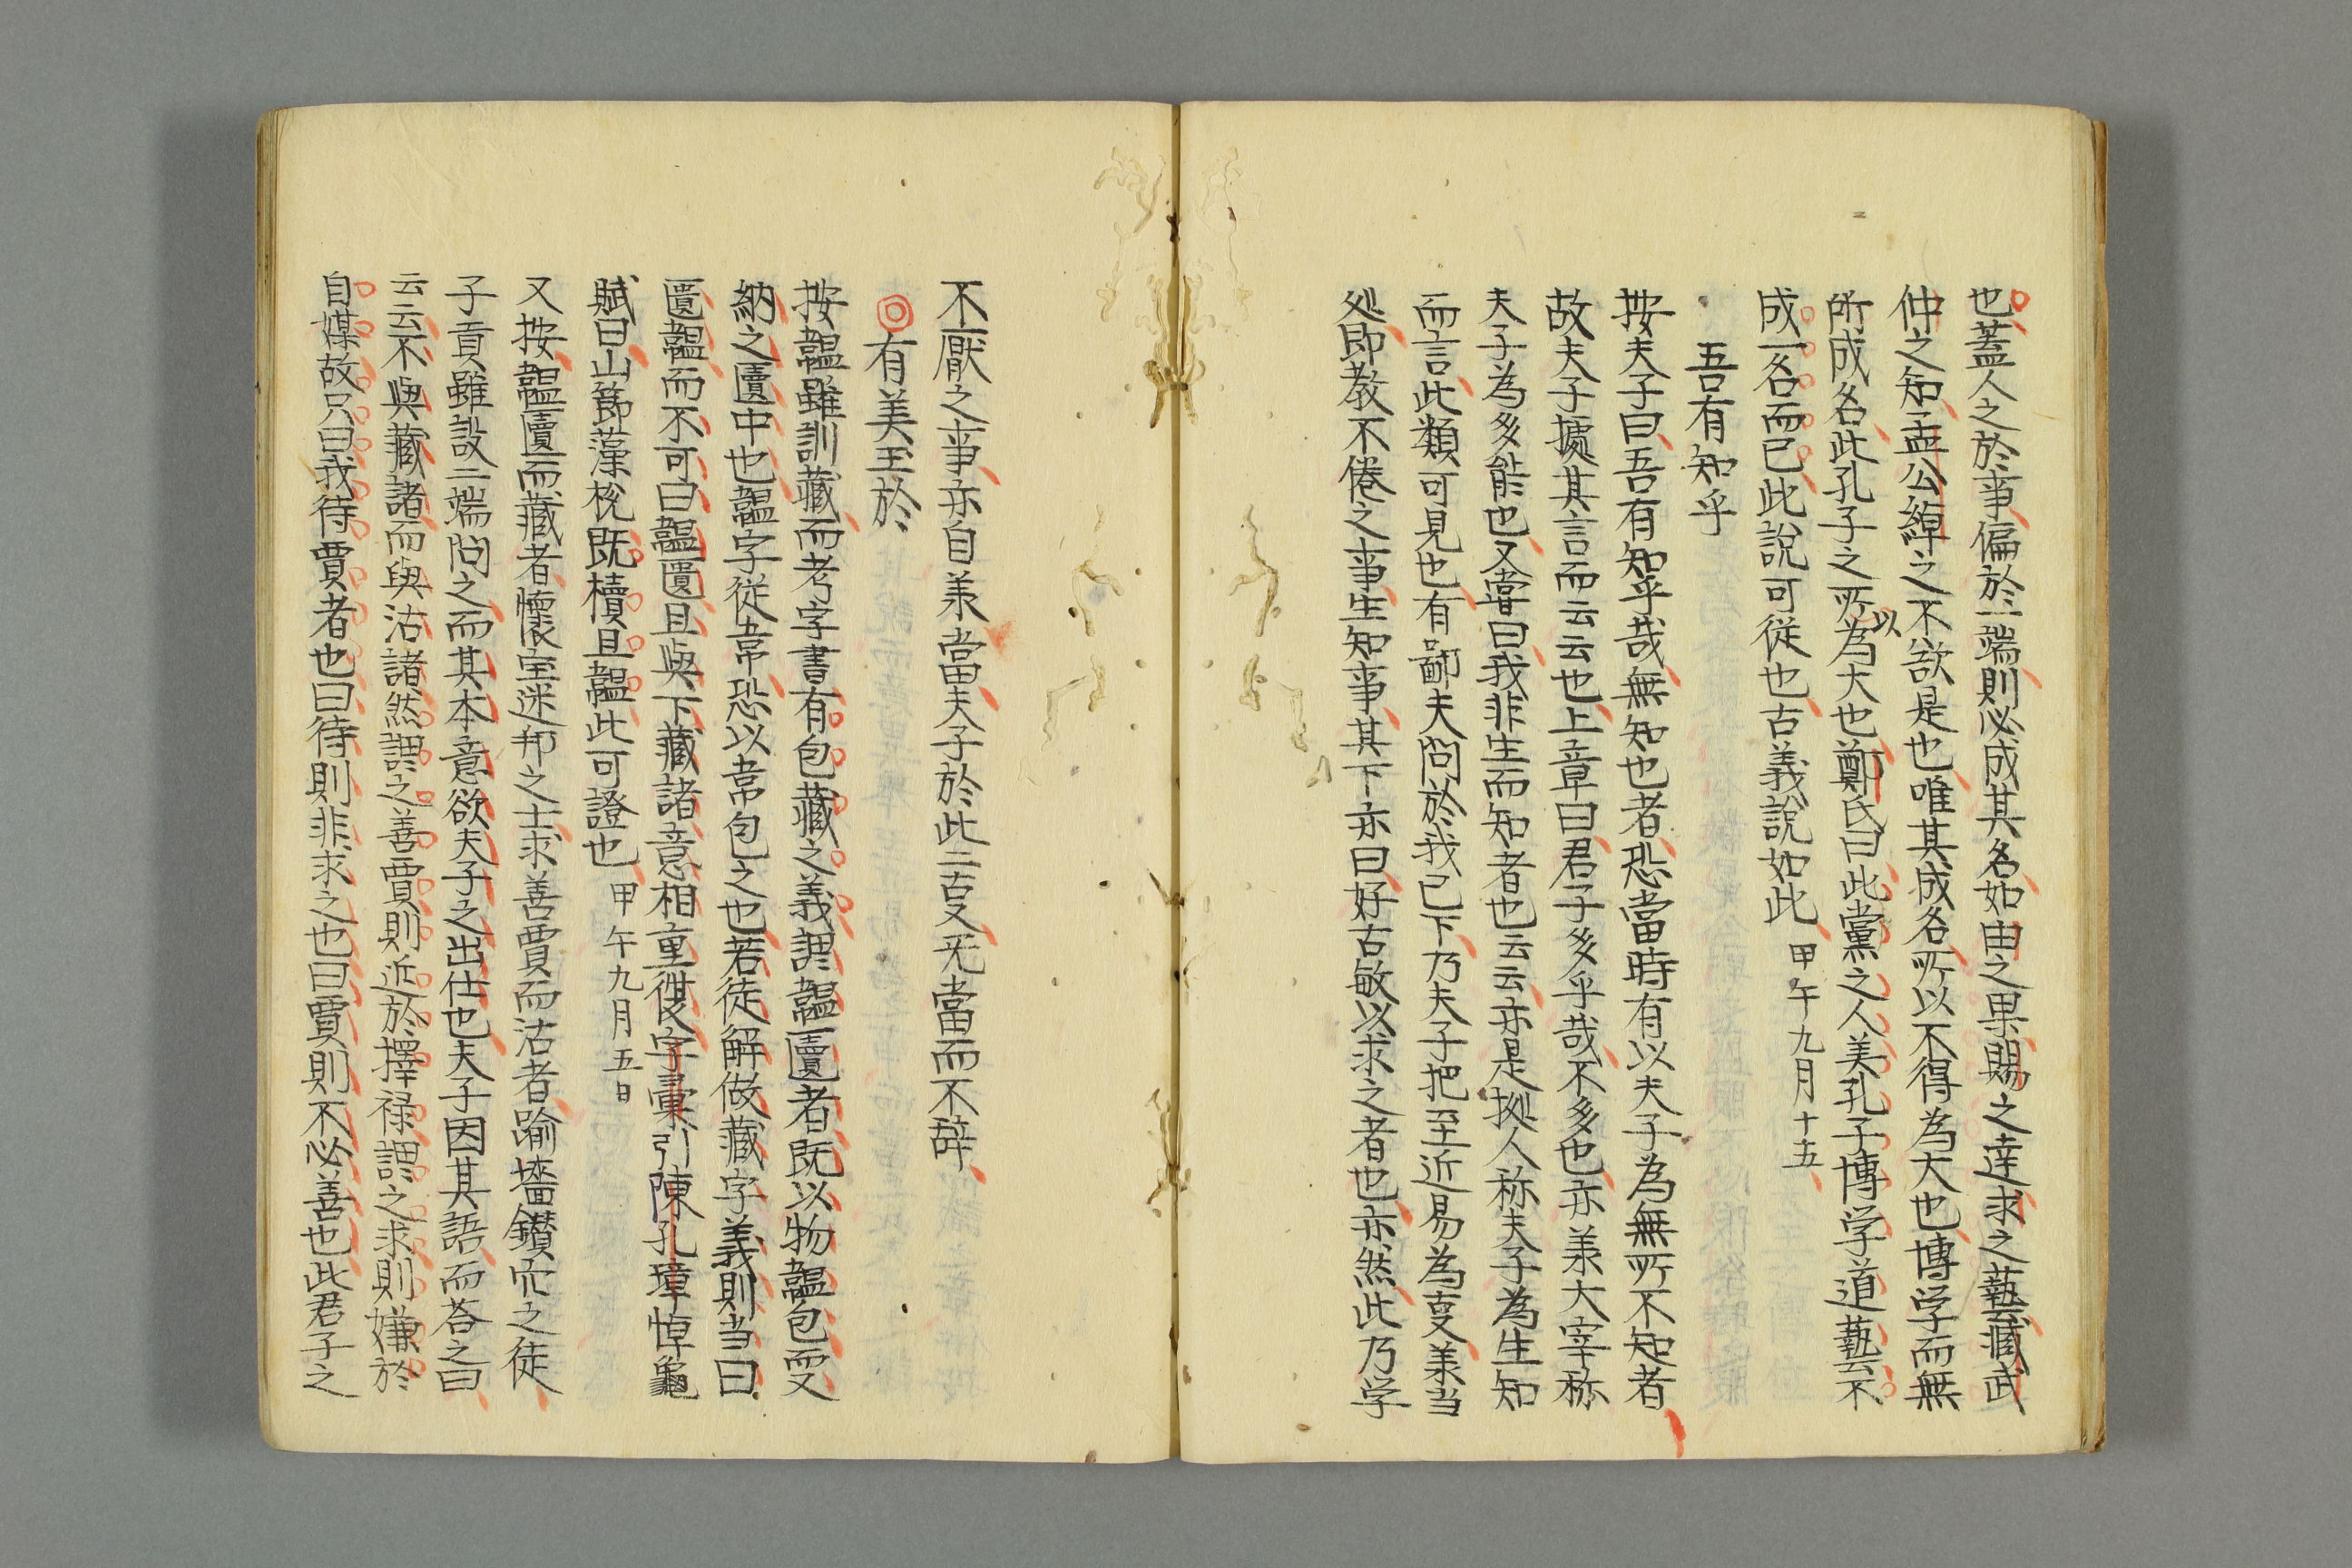 也蓋人之於事偏於一端則必成其名如由之果賜之達求之藝臧武
仲之知孟公綽之不欲是也唯其成名所以不得為大也博学而無
所成名此孔子之所以為大也鄭氏曰此黨之人美孔子博学道藝不
成一名而已此說可從也古義說如此 甲午九月十五
吾有知乎
按夫子曰吾有知乎哉無知也者恐當時有以夫子為無所不知者
故夫子據其言而云云也上章曰君子多乎哉不多也亦羕大宰称
夫子為多能也又嘗曰我非生而知者也云云亦是拠人称夫子為生知
而言此類可見也有鄙夫問於我已下乃夫子把至近易為叓羕当
処即教不倦之事生知事其下亦曰好古敏以求之者也亦然此乃学
不厭之事亦自羕當夫子於此二叓又旡當而不辞
◎有美玉於
按韞雖訓藏而考字書有包藏之義謂韞匵者既以物韞包而又
納之匵中也韞字從韋恐以韋包之也若徒解做藏字義則当曰
匵韞而不可曰韞匵且與下藏諸意相重複字彙引陳孔璋悼龜
賦曰山節藻梲既櫝且韞此可證也 甲午九月五日
又按韞匵而藏者懷宝迷邦之士求善賈而沽者踰墻鑽穴之徒
子貢雖設二端問之而其本意欲夫子之出仕也夫子因其語而荅之曰
云云不與藏諸而與沽諸然謂之善賈則近於擇禄謂之求則嫌於
自媒故只曰我待賈者也曰待則非求之也曰賈則不必善也此君子之